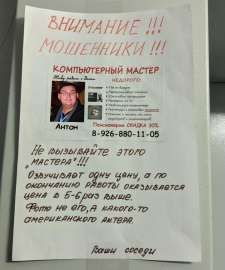 ВНИМАНИЕ!!!
МОШЕННИКИ!!!
КОМПЬЮТЕРНЫЙ МАСТЕР
НЕДОРОГО:
Антон
Пенсионерам СКИДКА 30%
8-926-880-11-05
НЕ ВЫЗЫВАЙТЕ ЭТОГО
"МАСТЕРА"!!!
Озвучивает одну цену, а по
окончанию работы оказывается
цена в 5-6 раз выше.
Фото не его, а какого-то
американского актера.
Ваши соседи